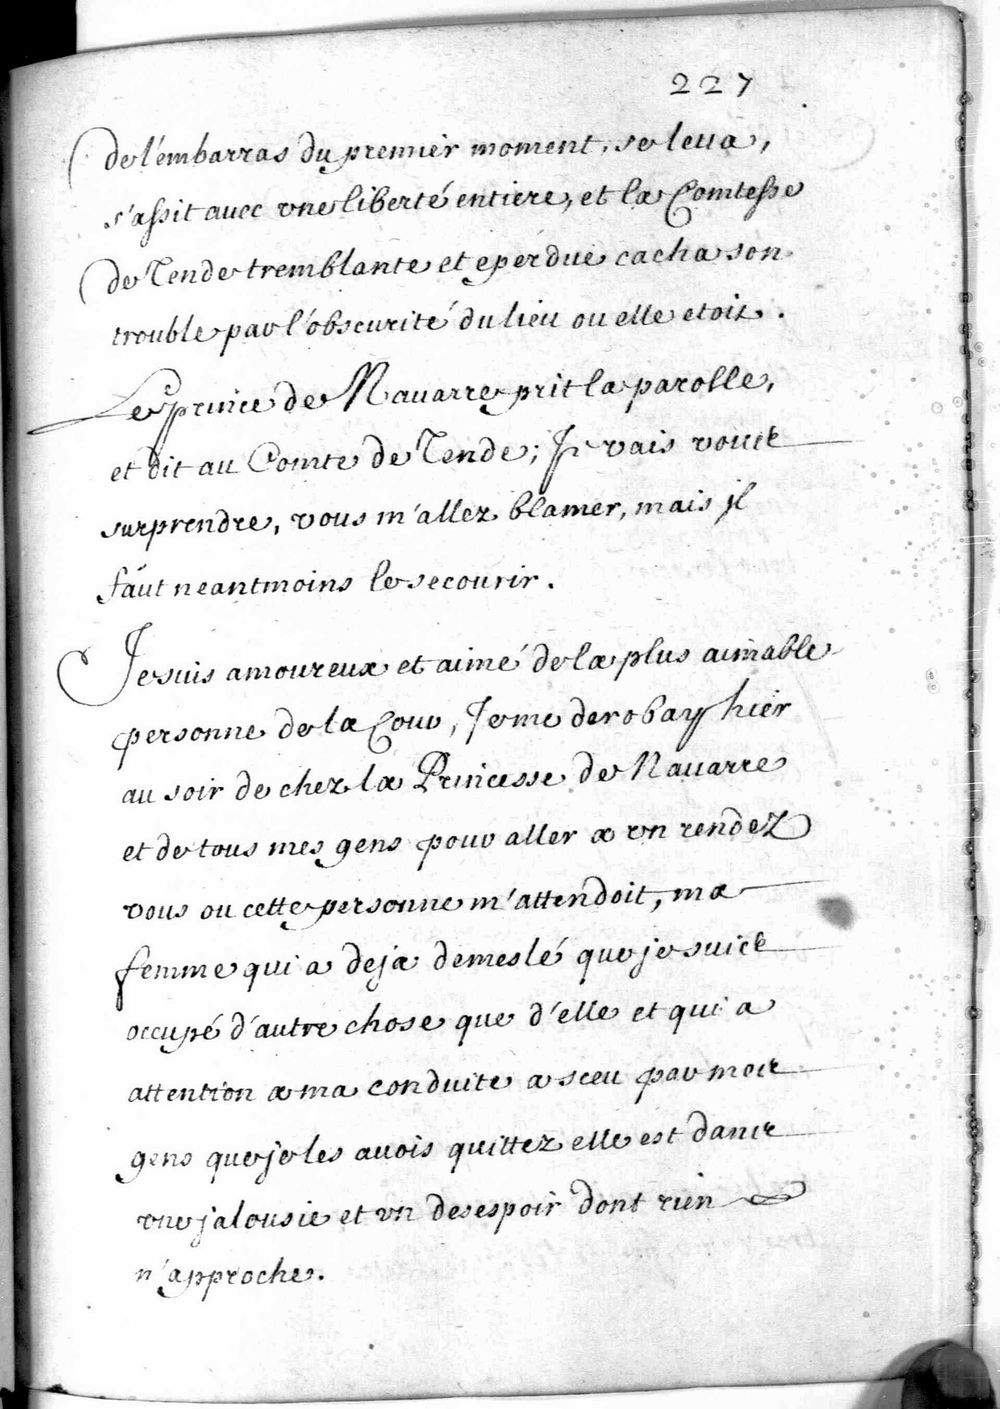 227
de l'embarras du premier moment, se leua,
s'assit auec vne liberté entiere, et la Comtesse
de Tende tremblante et eperdue cacha son
trouble par l'obscurité du lieu ou elle etoit.
Le prince de Nauarre prit la parolle,
et dit au Comte de Tende; Je vais vous
surprendre, vous m'allez blamer, mais jl
faut neantmoins le secourir.
Je suis amoureux et aimé de la plus aimable
personne de la Cour, Je me derobay hier
au soir de chez la Princesse de Nauarre
et de tous mes gens pour aller a vn rendez
vous ou cette personne m'attendoit, ma
femme qui a deja demeslé que je suis
occupé d'autre chose que d'elle et qui a
attention a ma conduite a sceu par mes
gens que je les auois quittez elle est dans
vne jalousie et vn desespoir dont rien
n'approche.